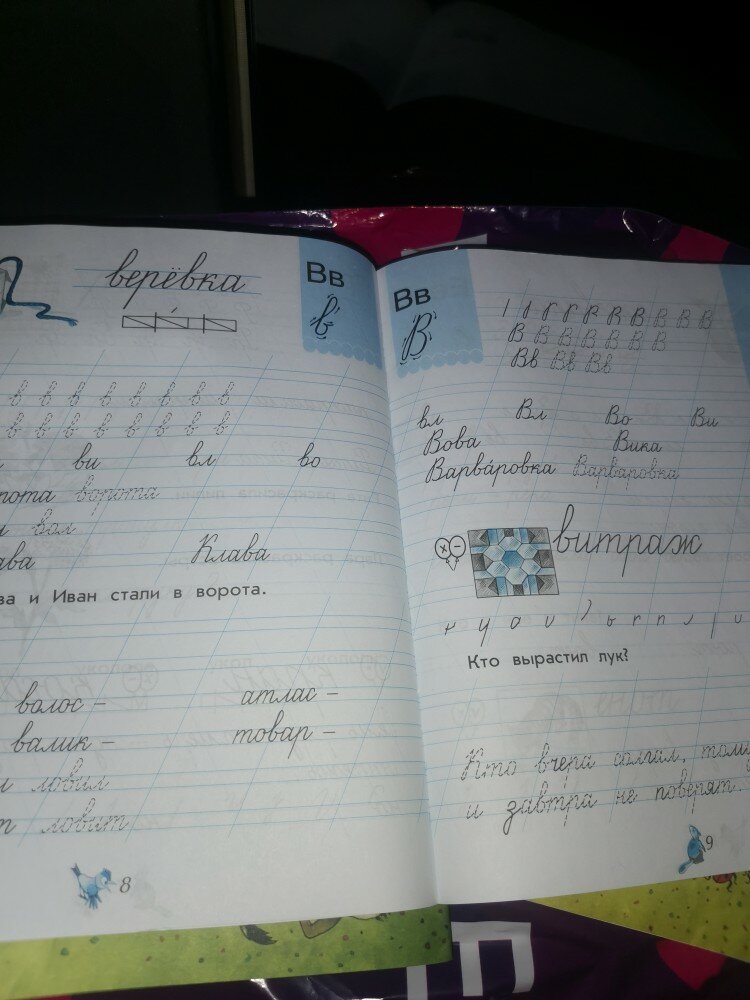 верёвка
Вв
в
в в в в в в в в
в в в в в в в в
ви вл во
ворота
вол
Клава
и Иван стали в ворота.
волос – атлас –
валик – товар –
ловил
ловит
8
Вв
В
В В В В
В В В В В В В
Вв Вв Вв
вл Вл Во Ви
Вова Вика
Варва́ровка Варваровка
х –
витраж
Кто вырастил лук?
Кто вчера солгал,
и завтра не поверят.
9